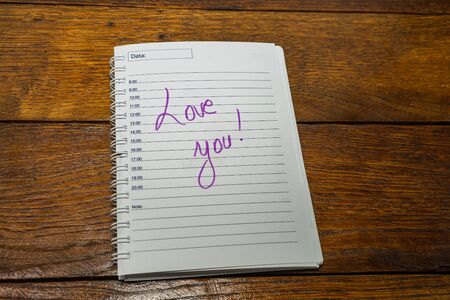 Data:
8:00
9:00
10:00
11:00
12:00
13:00
14:00
15:00
16:00
17:00
18:00
19:00
20:00
Note:
Love
you!